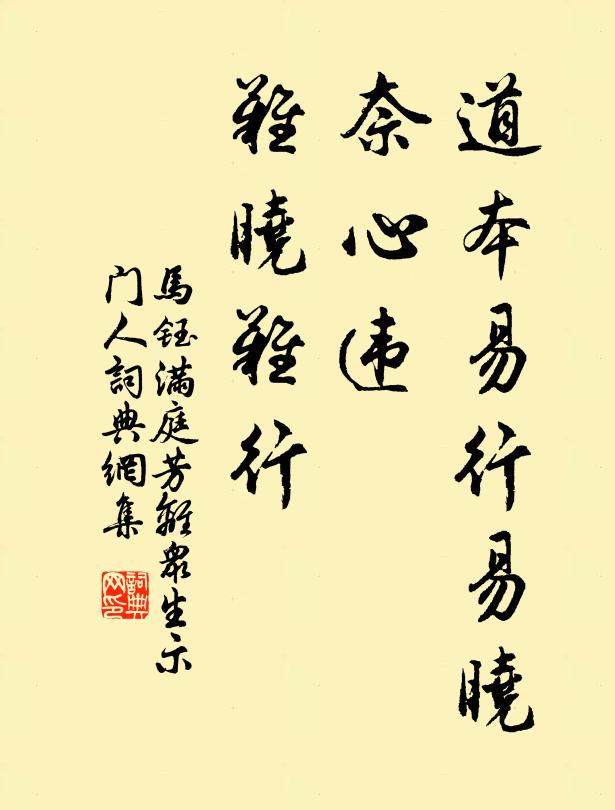 道本易行易曉
奈心违
難曉難行
馬鈺满庭芳難眾生示
门人詞典網集
詞典
网印